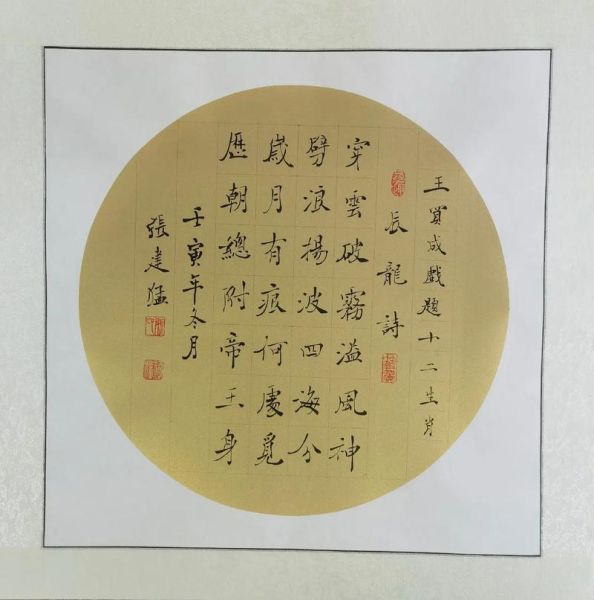 王買成戲題十二生肖
辰龍詩
穿雲破霧溢風神
劈浪揚波四海分
歲月有痕何處覓
歷朝總附帝王身
壬寅年冬月
張建猛